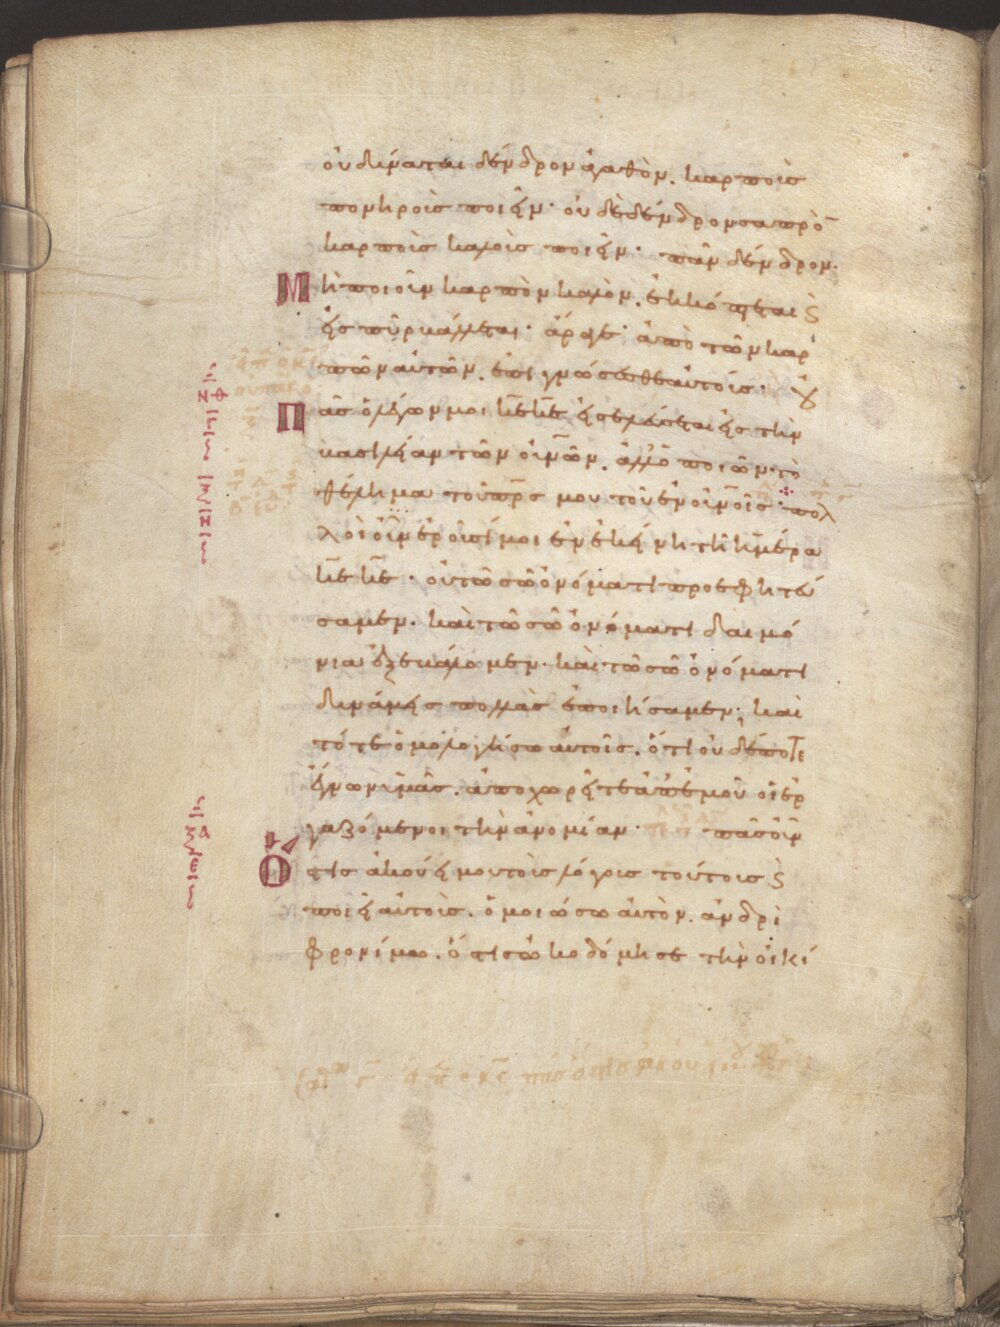 οὐ δύναται δένδρον ἀγαθὸν. καρποὺς
πονηροὺς ποιεῖν· οὐδὲ δένδρον σαπρὸ̅
καρποὺς καλοὺς ποιεῖν· πᾶν δένδρον·
Μὴ ποιοῦν καρπὸν καλὸν. ἐκκόπτεται ϛ
εἰς πῦρ βάλλεται· ἄραγε· ἀπὸ τῶν καρ
πῶν αὐτῶν. ἐπιγνώσεσθε αὐτούς·
Πᾶς ὁ λέγων μοι κ̅ε κ̅ε εἰσελεύσεται εἰς τὴν
βασιλείαν τῶν οὐν̅ῶν. ἀλλ' ὁ ποιῶν τὸ
θέλημα τοῦ πρ̅ς μου τοῦ ἐν οὐν̅οῖς· πολ
λοὶ οὖν ἐροῦσί μοι ἐν ἐκείνῃ τῇ ἡμέρα
κ̅ε κ̅ε· οὐ τῶ σῶ ὀνόματι προεφητεύ
σαμεν. καὶ τῶ σῶ ὀνόματι δαιμό
νια ἐξεβάλομεν· καὶ τῶ σῶ ὀνόματι
δυνάμεις πολλὰς ἐποιήσαμεν; καὶ
τότε ὁμολογήσω αὐτοῖς. ὅτι οὐδέποτε
ἔγνων ὑμᾶς. ἀποχωρεῖτε ἀπ' ἐμοῦ οἱ ἐρ
γαζόμενοι τὴν ἀνομίαν· πᾶς οὖν
Ὅστις ἀκούει μου τοὺς λόγους τούτους ϛ
ποιεῖ αὐτοὺς. ὁμοιώσω αὐτὸν. ἀνδρὶ
φρονίμω. ὅστις ὠκοδόμησε τὴν οἰκί